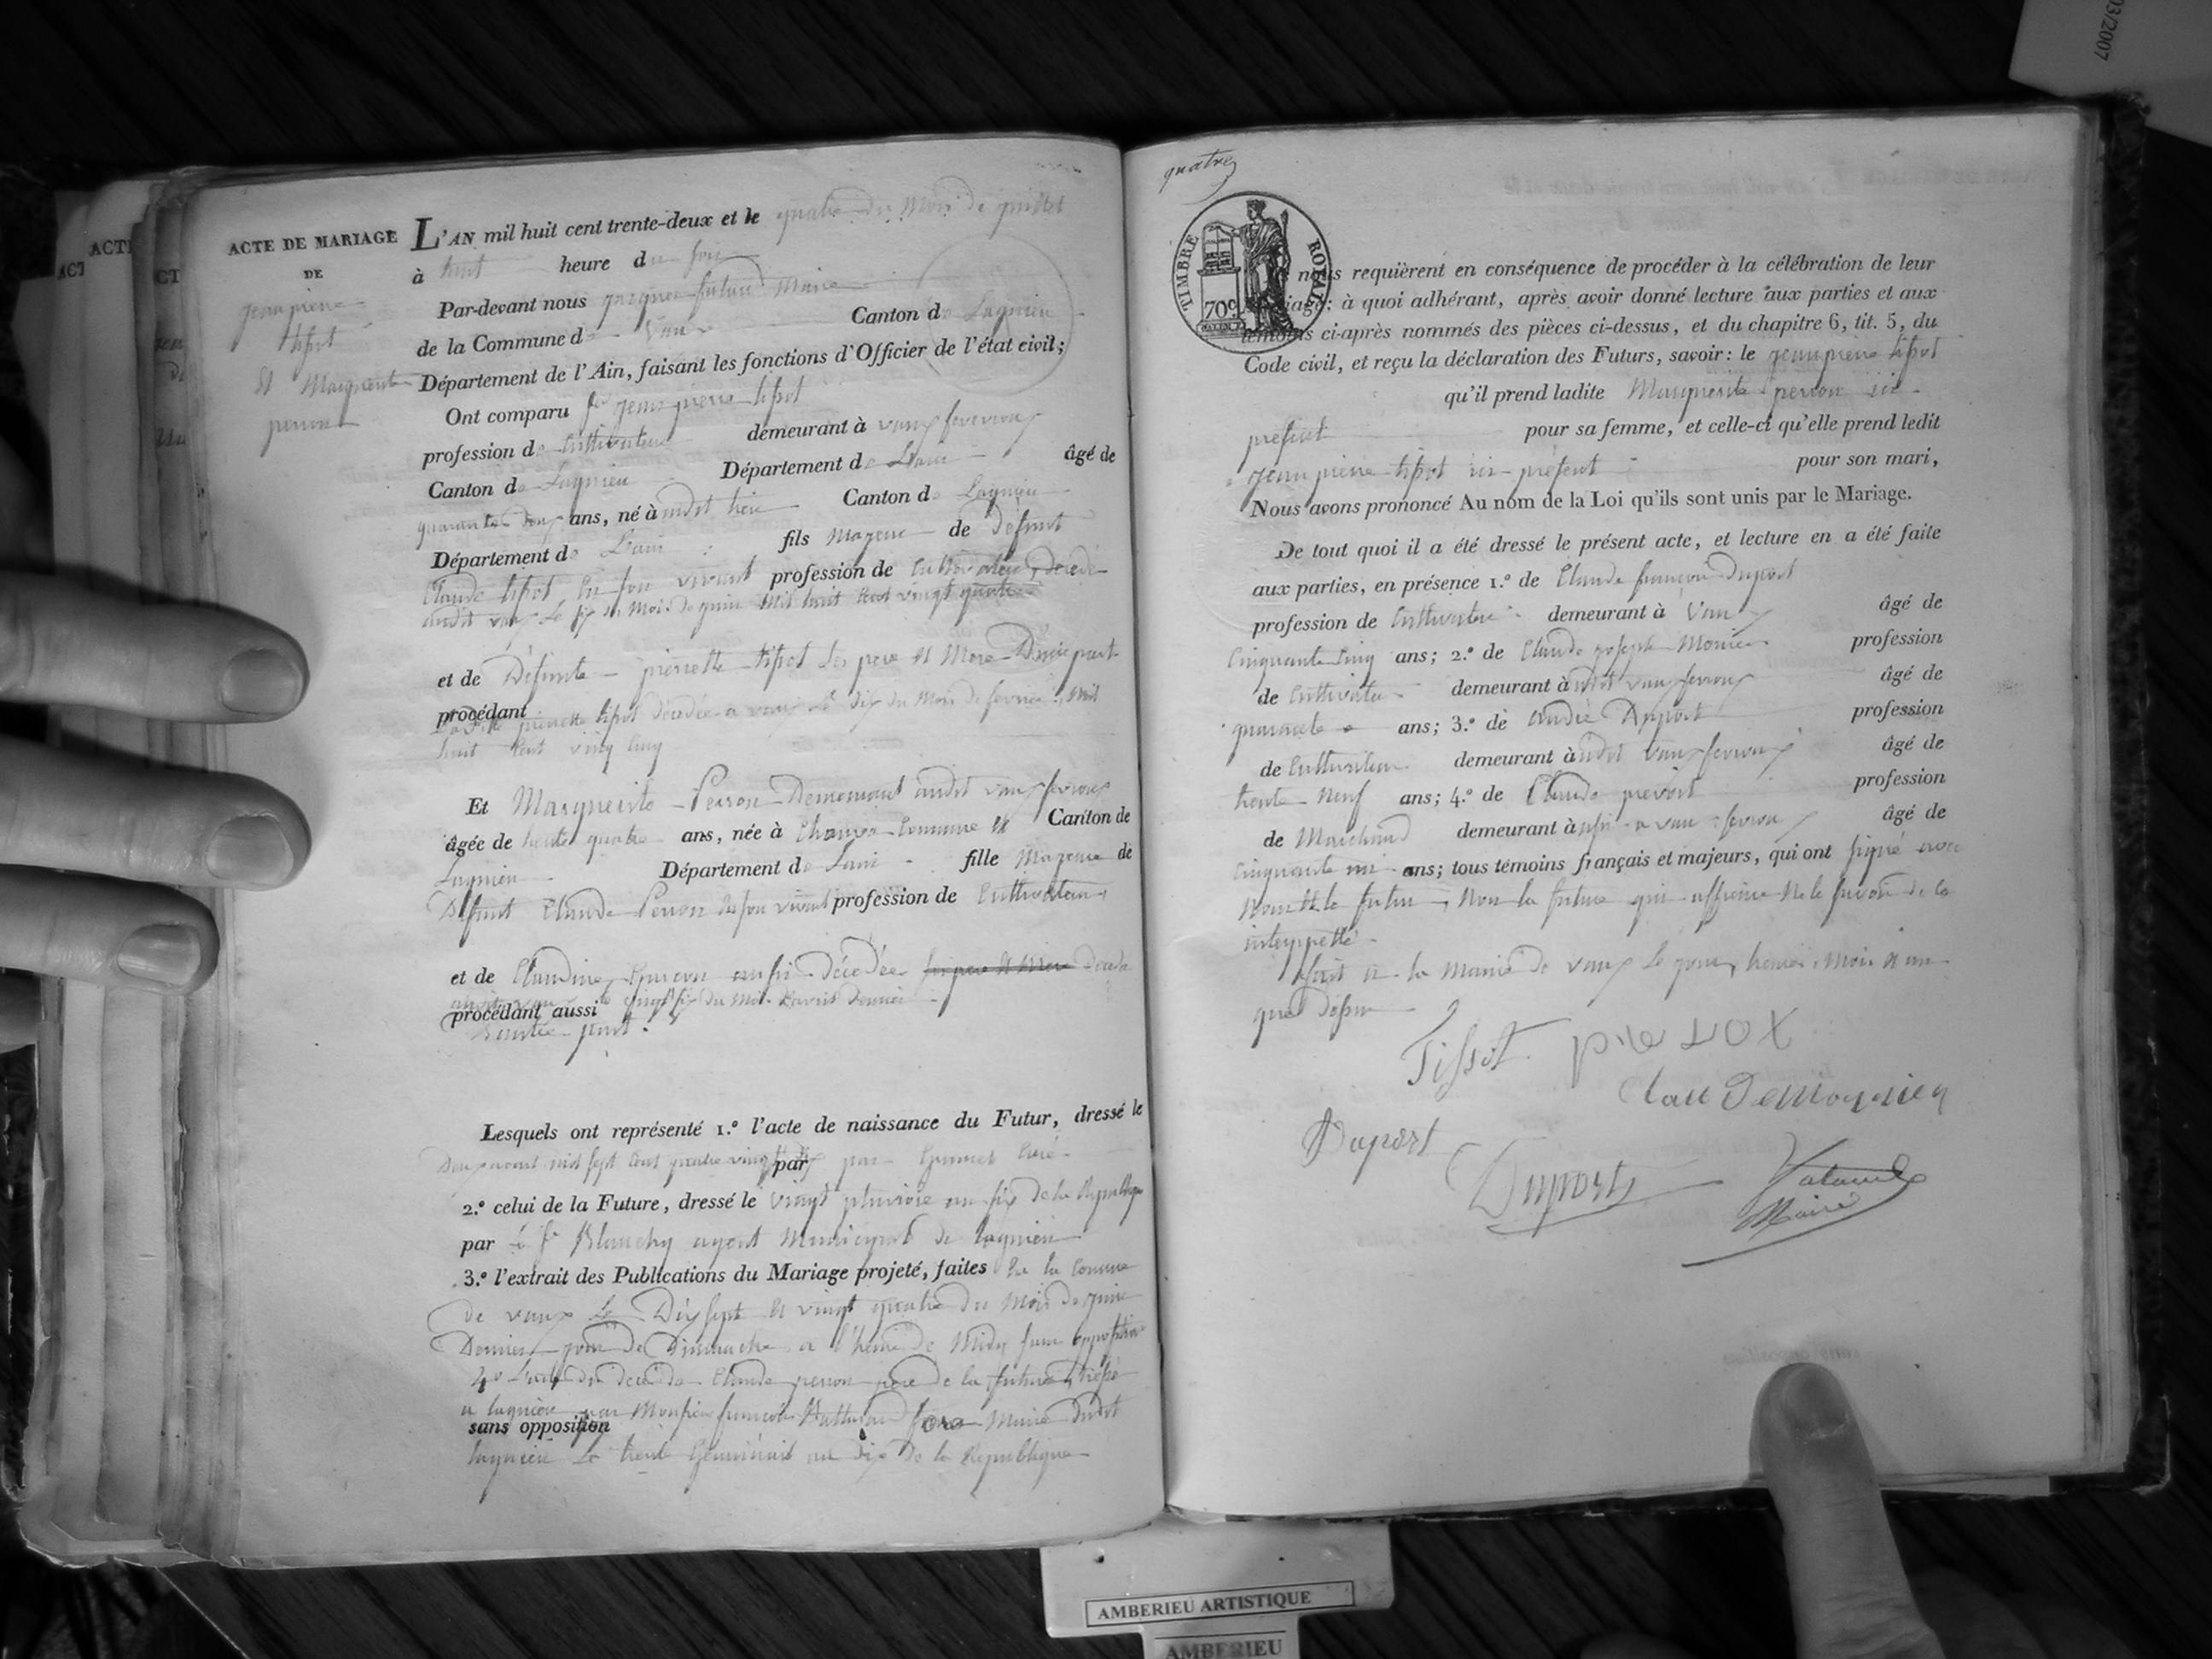 03/2007
ACTE DE MARIAGE
DE
jean pierre
tifsot
Et Marguerite
perron
L'AN mil huit cent trente-deux et le quatre du Mois de juillet
à huit heure du soir
Par-devant nous Maire
de la Commune de Vaux Canton de Lagnieu
Département de l'Ain, faisant les fonctions d'Officier de l'état civil;
Ont comparu Sr jean pierre tifsot
profession de Cultivateur demeurant à vaux fevroux
Canton de Lagnieu Département de L'ain âgé de
quarante deux ans, né à audit lieu Canton de Lagnieu
Département de L'ain fils Majeur de Défunt
Claude tifsot En son vivant profession de Cultivateur, décédé
audit vaux Le six du Mois de juin Mil huit Cent vingt quatre
et de Défunte pierrette tifsot Les pere Et Mere D'une part
procédant
La Dite pierrette tifsot décédée a vaux Le dix du Mois de fevrier, Mil
huit Cent vingt Cinq
Et Marguerite Perron Demeurant audit vaux fevroux
âgée de trente quatre ans, née à Commune Canton de
Lagnieu Département de Lain fille Majeure de
Défunt Claude Perron En son vivant profession de Cultivateur
et de Claudine aussi Décédée ses pere Et Mere Décédée
procédant aussi
audit vaux le vingt six du Mois Davril Dernier
D'autre part.
Lesquels ont représenté 1.º l'acte de naissance du Futur, dressé le
Deux mil sept Cent quatre vingt par par Curé
2.º celui de la Future, dressé le vingt pluviose an six de la Republique
par le Sr Blanchy agent Municipal de Lagnieu
3.º l'extrait des Publications du Mariage projeté, faites En la Commune
de vaux Le Dix sept Et vingt quatre du Mois de juin
Dernier jour de Dimanche a l'heure de Midy sans opposition
4º L'acte de décès de Claude perron pere de la future, dressé
a Lagnieu par Monsieur françois Maire dudit
sans opposition
lagnieu Le trente an dix de la Republique
quatre
TIMBRE ROYAL
70c.
nous requièrent en conséquence de procéder à la célébration de leur
mariage: à quoi adhérant, après avoir donné lecture aux parties et aux
témoins ci-après nommés des pièces ci-dessus, et du chapitre 6, tit. 5, du
Code civil, et reçu la déclaration des Futurs, savoir: le jean pierre tifsot
qu'il prend ladite Marguerite perron ici
présent pour sa femme, et celle-ci qu'elle prend ledit
jean pierre tifsot ici présent pour son mari,
Nous avons prononcé Au nom de la Loi qu'ils sont unis par le Mariage.
De tout quoi il a été dressé le présent acte, et lecture en a été faite
aux parties, en présence 1.º de Claude françois Duport
profession de Cultivateur demeurant à Vaux âgé de
Cinquante Cinq ans; 2.º de Claude joseph Monier profession
de Cultivateur demeurant à audit vaux fevroux âgé de
quarante ans; 3.º de André Duport profession
de Cultivateur demeurant à audit vaux fevroux âgé de
trente Neuf ans; 4.º de Claude prevost profession
de Marchand demeurant à aussi a vaux fevroux âgé de
Cinquante un ans; tous témoins français et majeurs, qui ont signé avec
Nous Et le futur, Non la future qui affirme Ne le savoir de ce
interpellé
fait en la Mairie de vaux Le jour, heure, Mois et an
que Dessus
Tifsot
Duport
Duport
Maire
AMBERIEU ARTISTIQUE
AMBERIEU